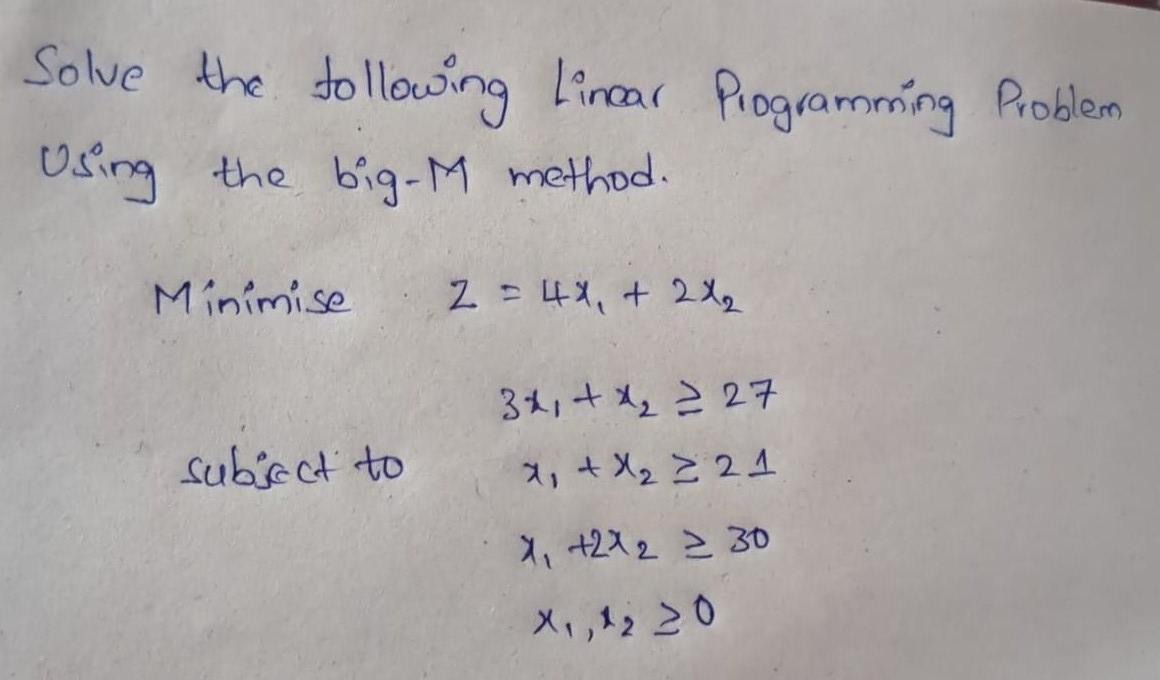 Solve the following Linear Programming Problem
Using the big-M method.
Minimise Z = 4x₁ + 2x₂
3x₁ + x₂ ≥ 27
subject to x₁ + x₂ ≥ 21
x₁ + 2x₂ ≥ 30
x₁, x₂ ≥ 0